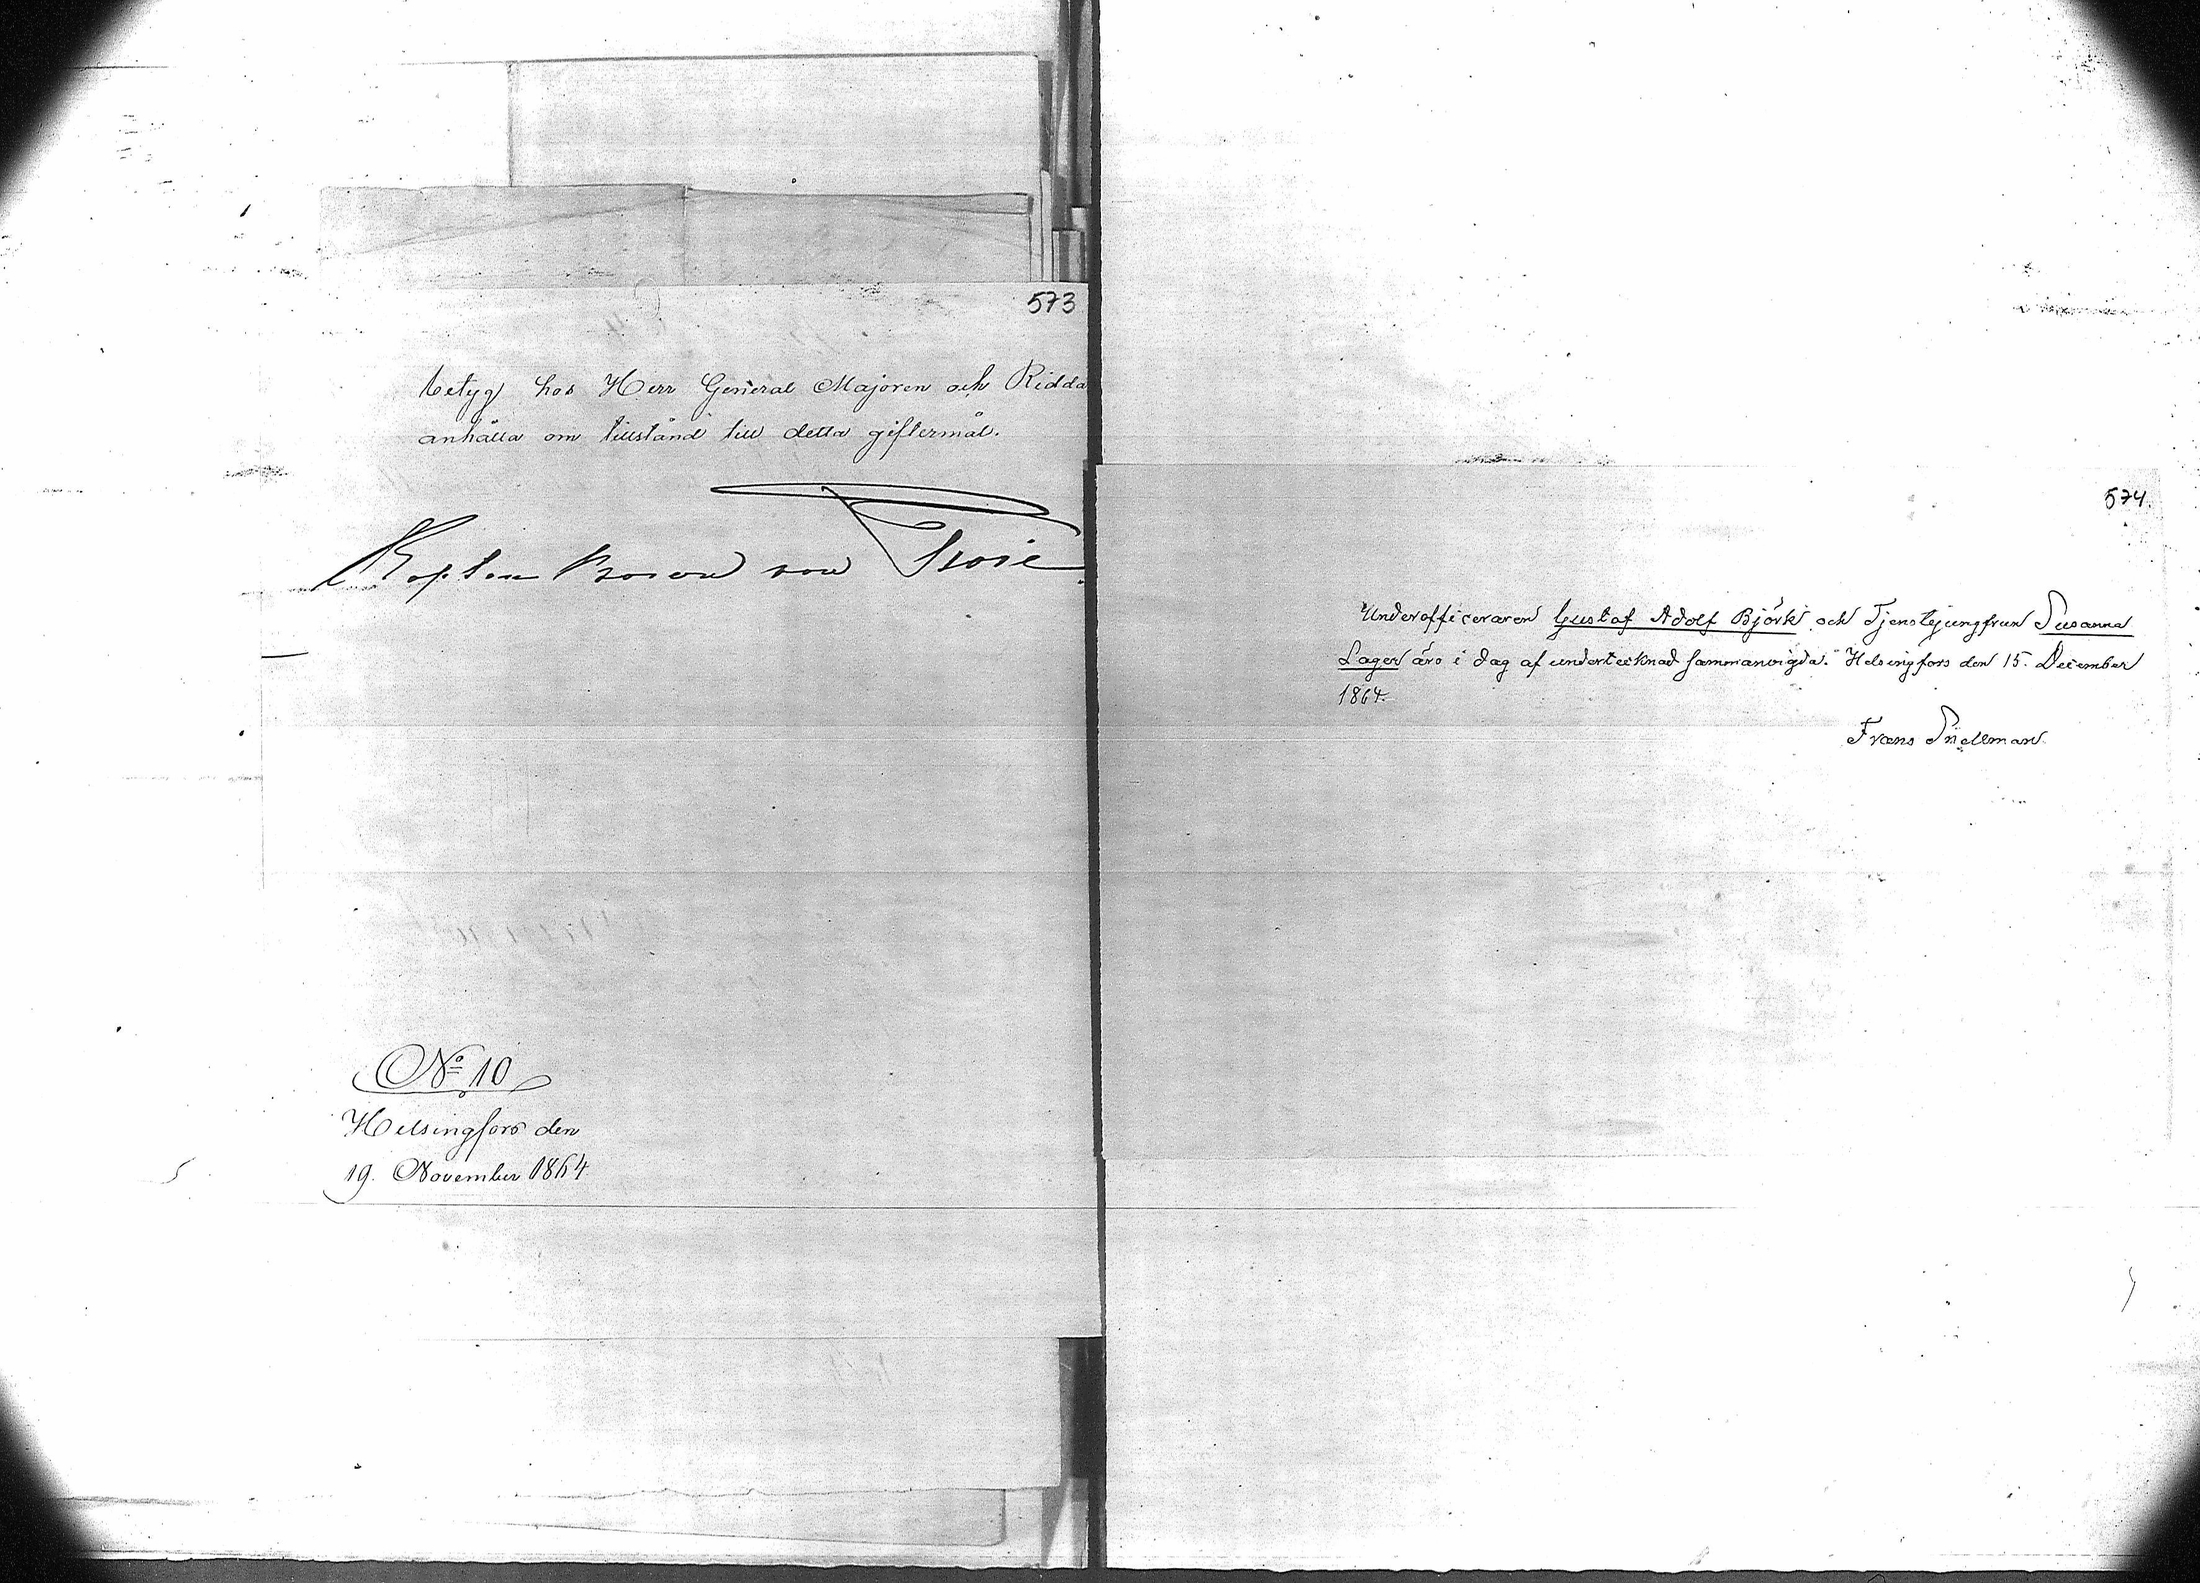 573
betyg hos Herr General Majoren och Ridda
anhålla om tillstånd till detta giftermål.
Kapten Baron von
No 10
Helsingfors den
19. November 1864
574.
Underofficeraren Gustaf Adolf Björk och Tjenstejungfrun Susanna
Lager äro i dag af undertecknad sammanvigda. Helsingfors den 15. December
1864.
Frans